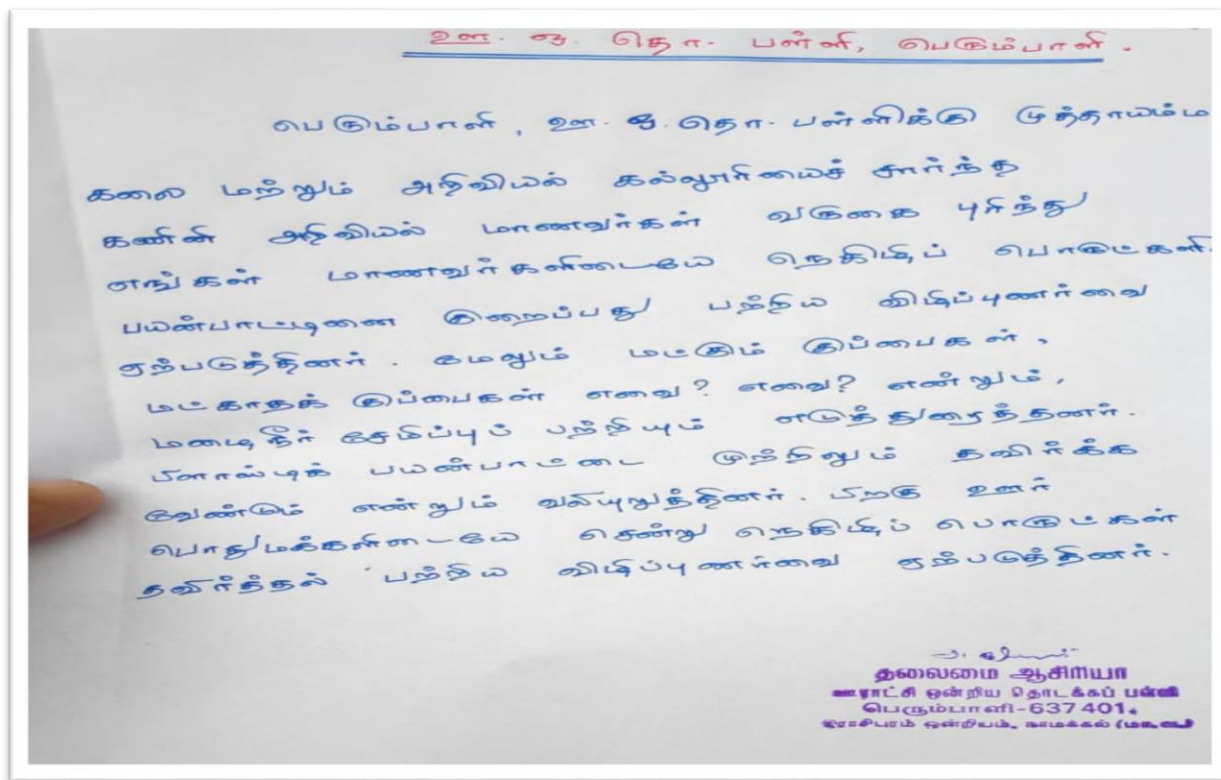 ஊ. ஒ. தொ. பள்ளி, பெரும்பாளி.
பெரும்பாளி, ஊ. ஒ. தொ. பள்ளிக்கு முத்தாயம்ம
கலை மற்றும் அறிவியல் கல்லூரியைச் சார்ந்த
கணினி அறிவியல் மாணவர்கள் வருகை புரிந்து
எங்கள் மாணவர்களிடையே நெகிழிப் பொருட்களி
பயன்பாட்டினை குறைப்பது பற்றிய விழிப்புணர்வை
ஏற்படுத்தினர். மேலும் மட்கும் குப்பைகள்,
மட்காதக் குப்பைகள் எவை? எவை? என்றும்,
மழைநீர் சேமிப்புப் பற்றியும் எடுத்துரைத்தனர்.
பிளாஸ்டிக் பயன்பாட்டை முற்றிலும் தவிர்க்க
வேண்டும் என்றும் வலியுறுத்தினர். பிறகு ஊர்
பொதுமக்களிடையே சென்று நெகிழிப் பொருட்கள்
தவிர்த்தல் பற்றிய விழிப்புணர்வை ஏற்படுத்தினர்.
தலைமை ஆசிரியர்
ஊராட்சி ஒன்றிய தொடக்கப் பள்ளி
பெரும்பாளி-637 401.
இராசிபுரம் ஒன்றியம், நாமக்கல்